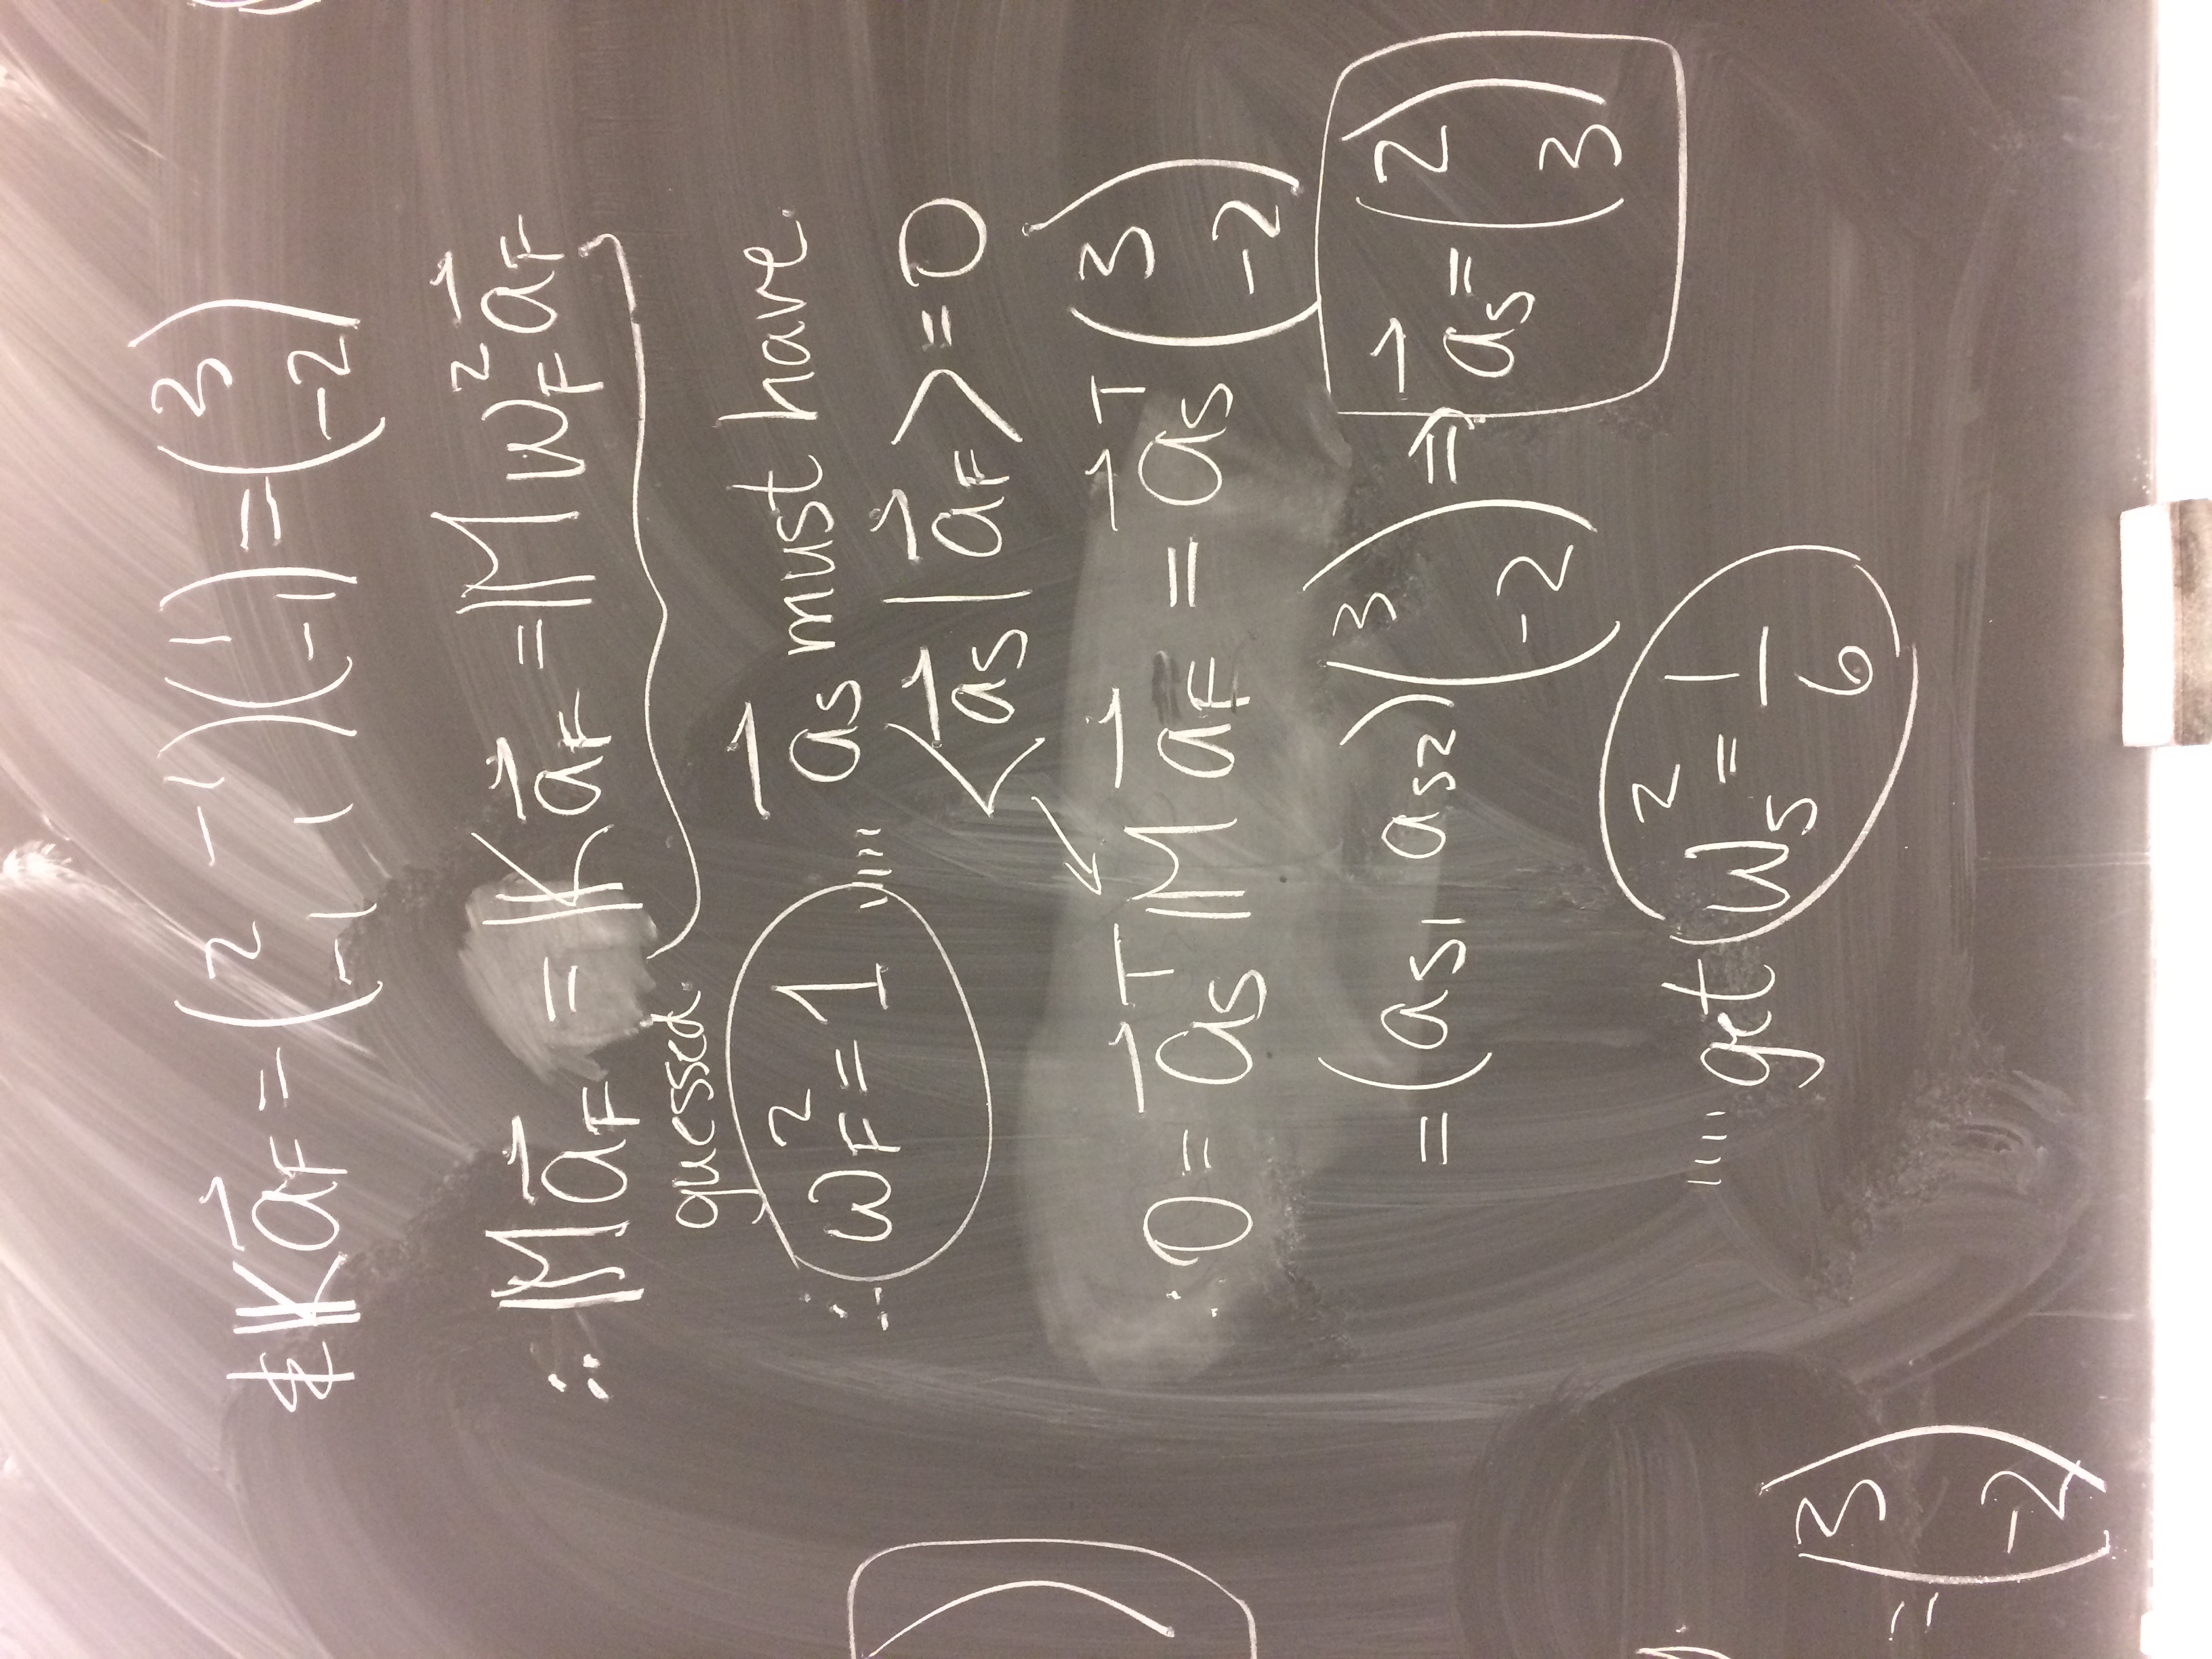 & 𝕂a⃗_F = (2 -1; -1 1)(1; -1) = (3; -2)
∴ 𝕄a⃗_F = 𝕂a⃗_F = 𝕄ω_F²a⃗_F
guessed.
∴ ω_F² = 1 '''' a⃗_S must have
<a⃗_S|a⃗_F> = 0
∴ 0 = a⃗_S^T 𝕄 a⃗_F = a⃗_S^T (3; -2)
= (a_S1 a_S2)(3; -2) ⇒ a⃗_S = (2; 3)
'''' get ω_S² = 1/6
= (3; -2)